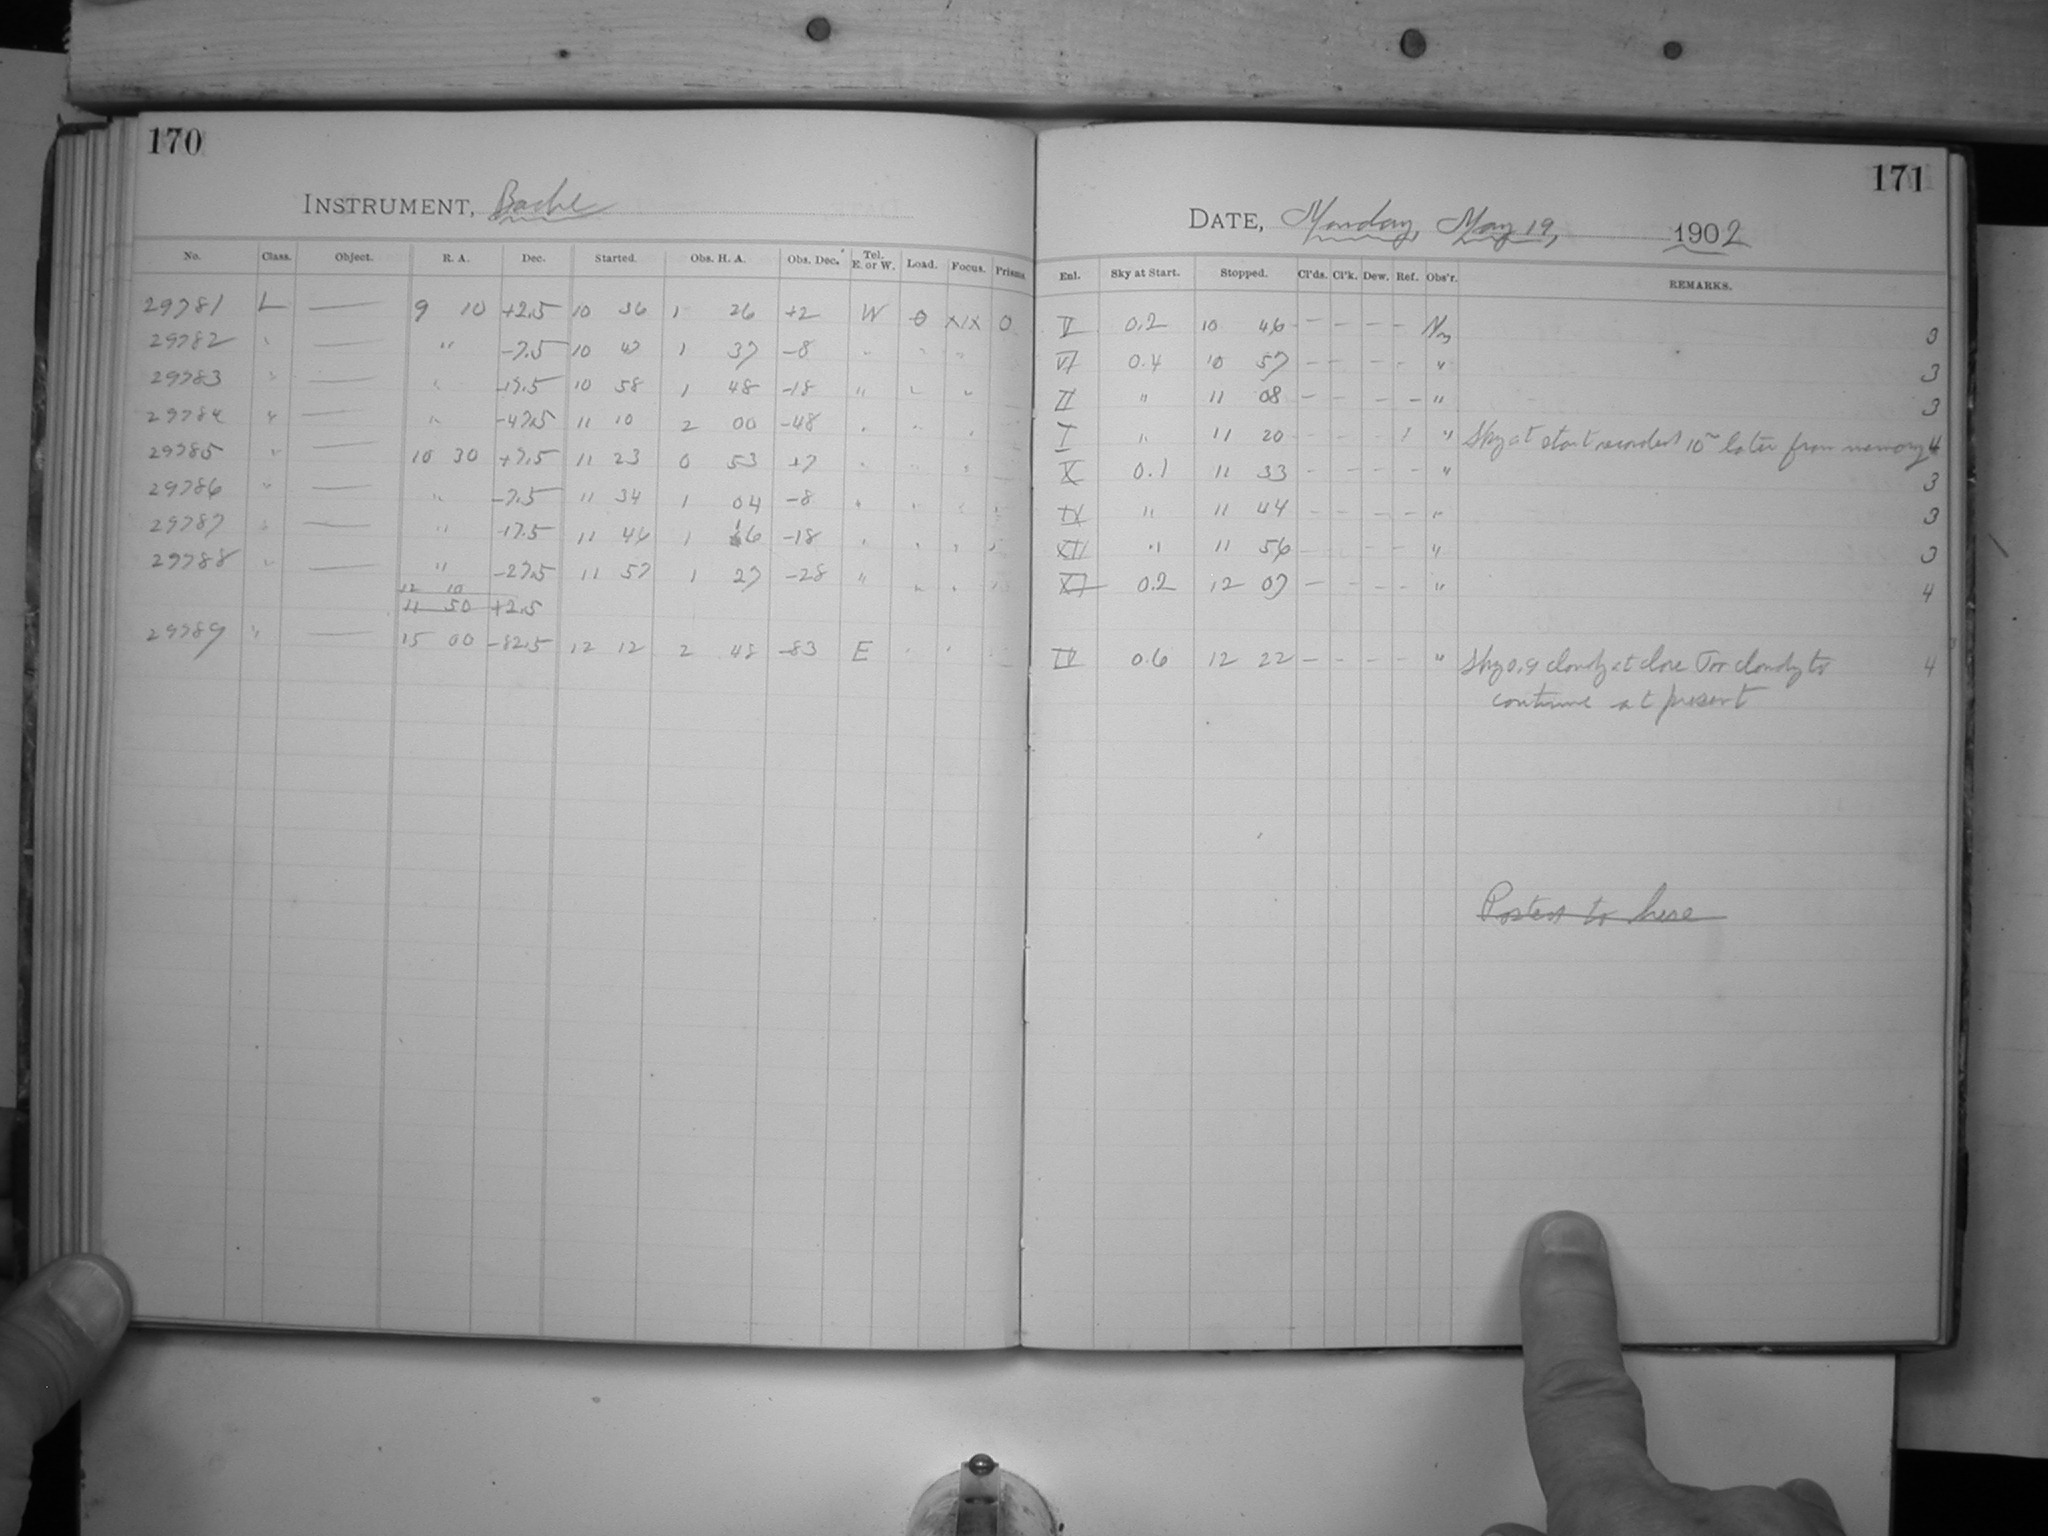 170
INSTRUMENT, Bache
No. Class. Object. R. A. Dec. Started. Obs. H. A. Obs. Dec. Tel. E. or W. Load. Focus. Prisms
29781 L — 9 10 +2.5 10 36 1 26 +2 W 0 XIX 0
29782 " — " -7.5 10 47 1 37 -8 " " "
29783 " — " -17.5 10 58 1 48 -18 " " "
29784 " — " -47.5 11 10 2 00 -48 " " "
29785 " — 10 30 +7.5 11 23 0 53 +7 " " "
29786 " — " -7.5 11 34 1 04 -8 " " " "
29787 " — " -17.5 11 46 1 16 -18 " " " "
29788 " — " -27.5 11 57 1 27 -28 " " " "
12 10
11 50 +2.5
29789 " — 15 00 -82.5 12 12 2 48 -83 E " " "
171
DATE, Monday, May 19, 1902
Enl. Sky at Start. Stopped. Cl'ds. Cl'k. Dew. Ref. Obs'r. REMARKS.
V 0.2 10 46 – – – – 3
VI 0.4 10 57 – – – – " 3
II " 11 08 – – – – " 3
I " 11 20 – – – " Sky at start recorded 10m later from memory 4
X 0.1 11 33 – – – – " 3
IX " 11 44 – – – – " 3
XII .1 11 56 – – – – " 3
XI 0.2 12 07 – – – – " 4
IV 0.6 12 22 – – – – " Sky 0.9 cloudy at close Too cloudy to 4
continue at present
Posted to here